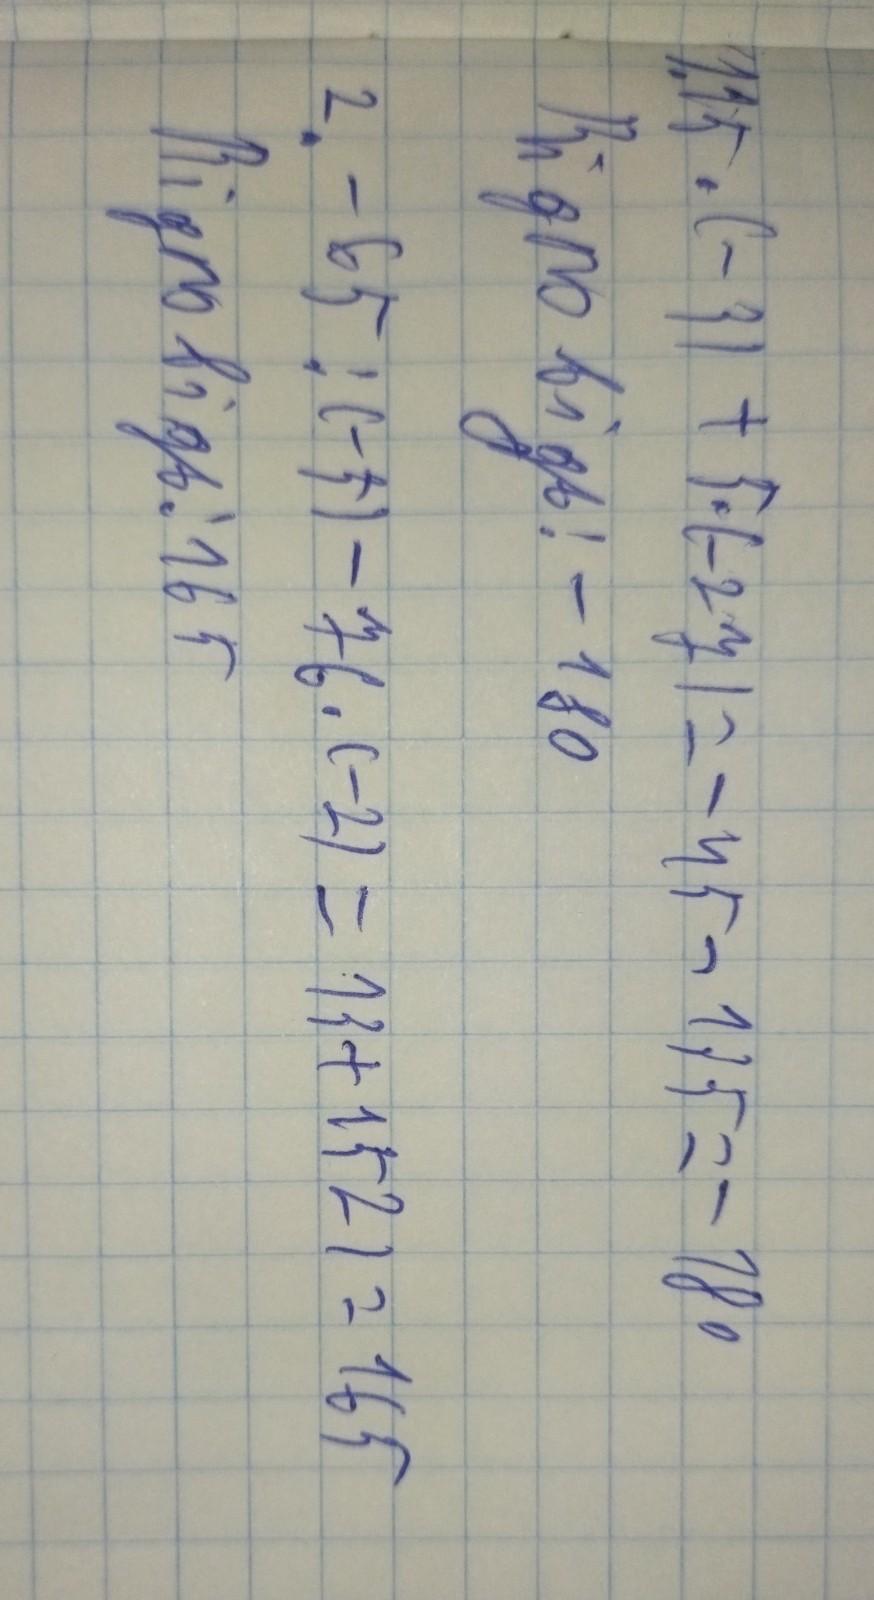 1. 15·(-3)+5·(-27)=-45-135=-180
Відповідь: -180
2. -65:(-5)-76·(-2)=13+152)=165
Відповідь: 165